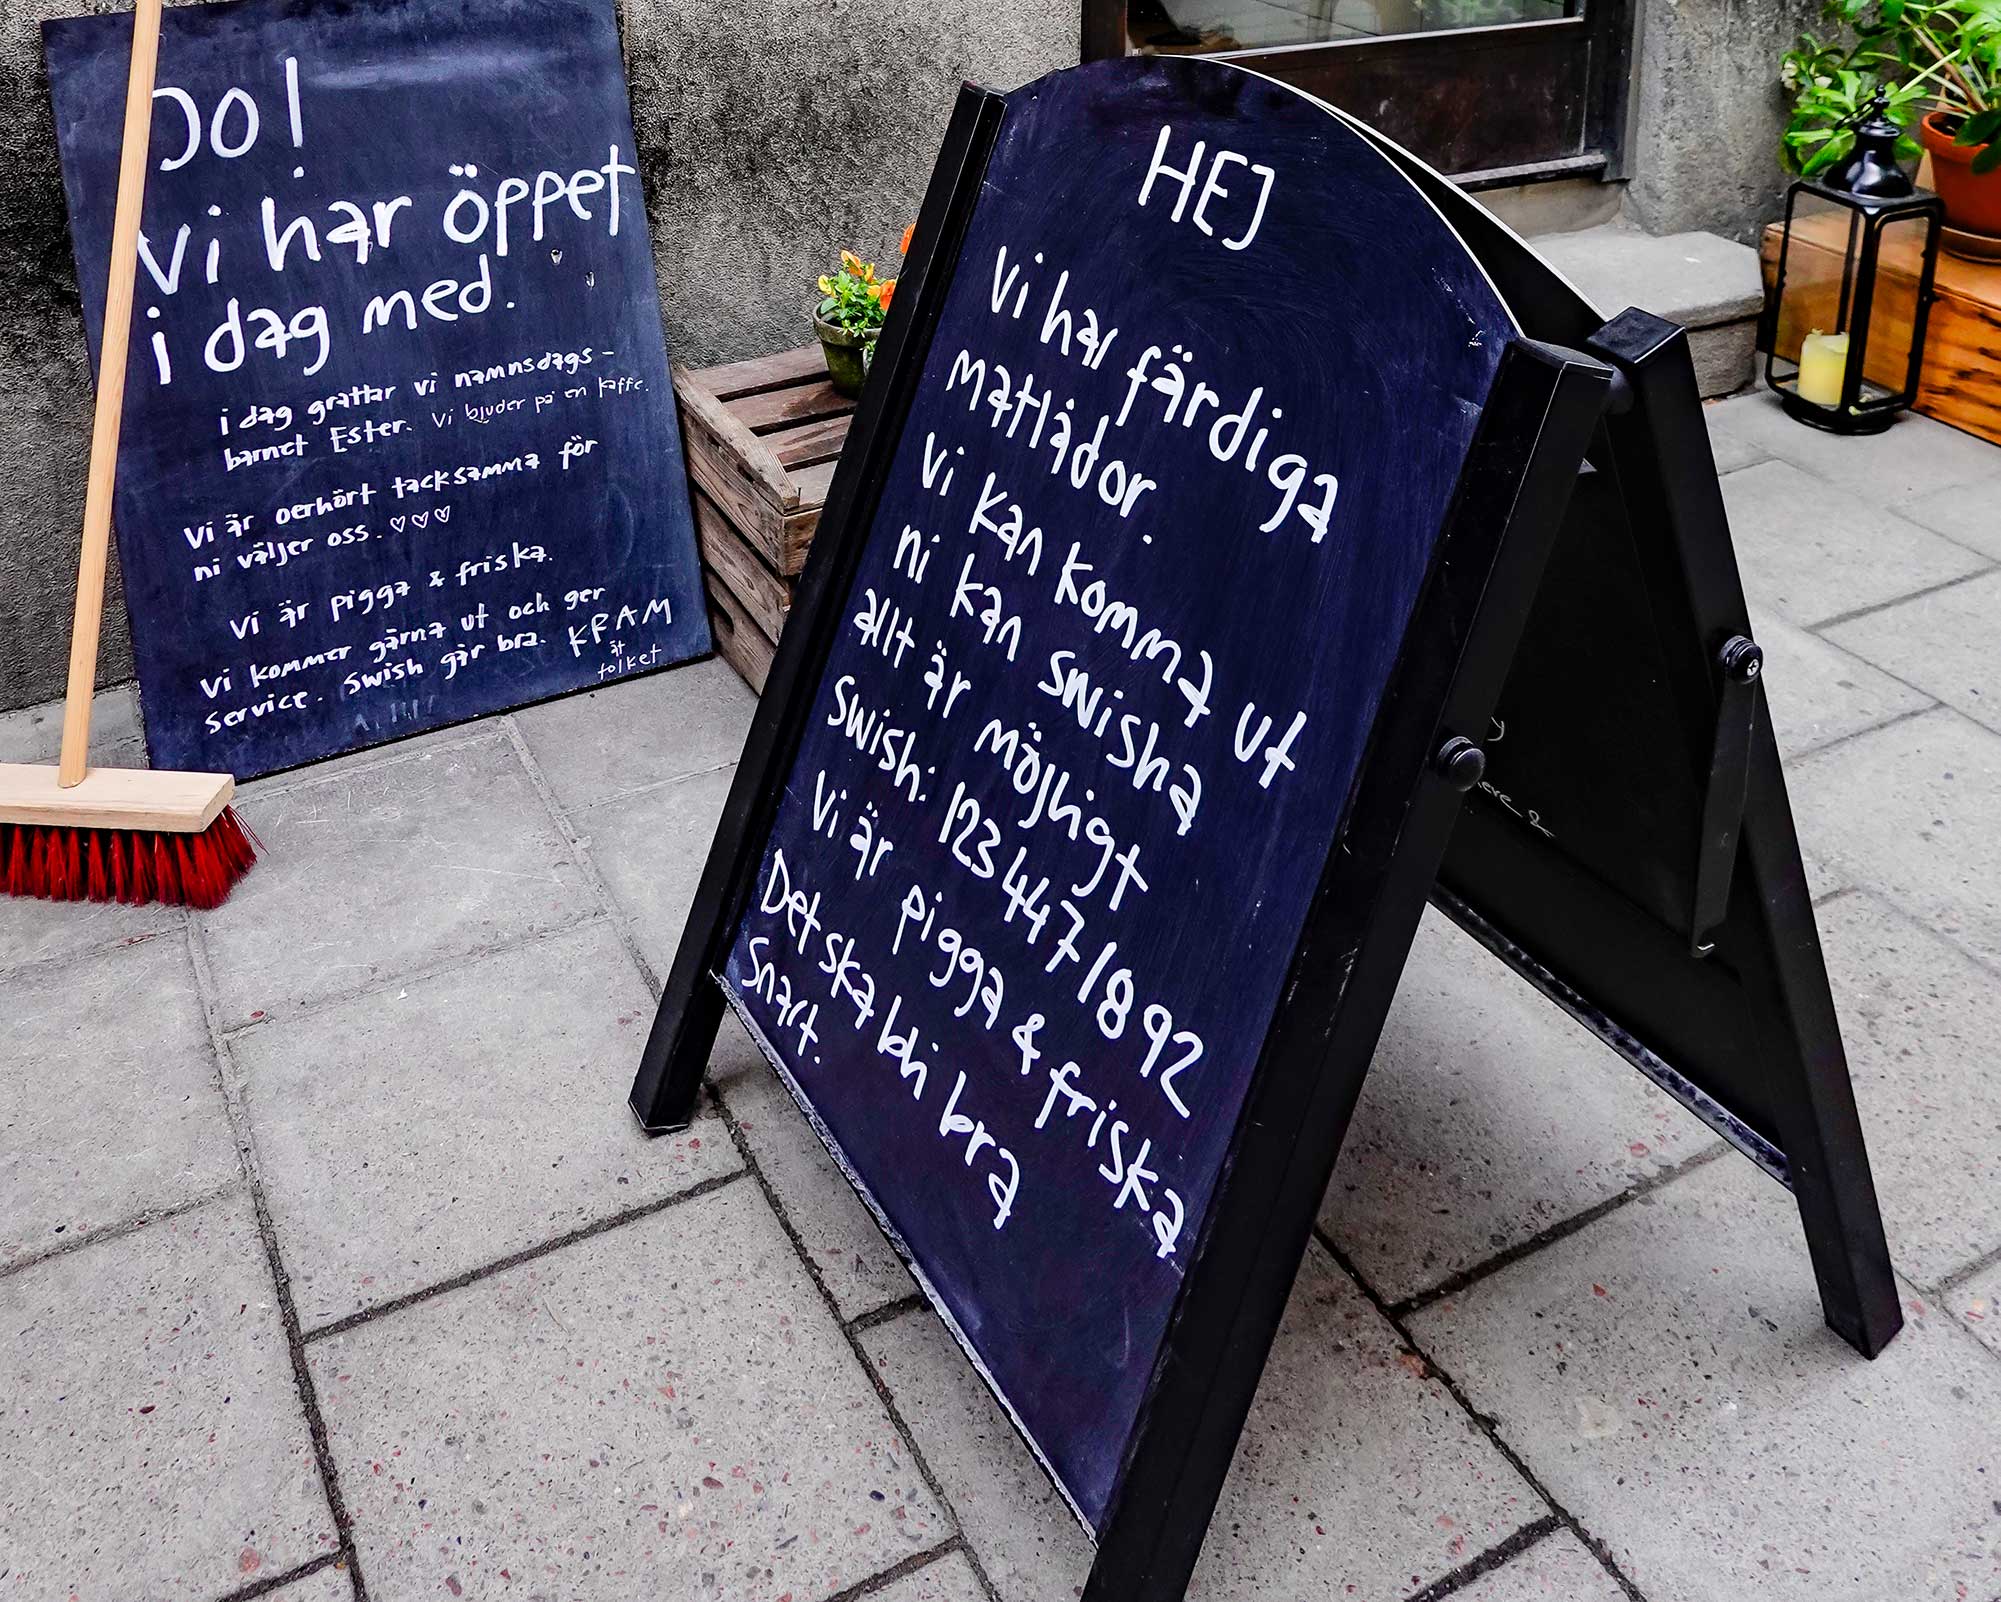 JO!
Vi har öppet
i dag med.
i dag grattar vi namnsdags-
barnet Ester. Vi bjuder på en kaffe.
Vi är oerhört tacksamma för
ni väljer oss. ♡♡♡
Vi är pigga & friska.
Vi kommer gärna ut och ger
Service. Swish går bra. KRAM
åt
folket
HEJ
Vi har färdiga
matlådor.
Vi kan komma ut
ni kan swisha
allt är möjligt
Swish: 123 447 18 92
Vi är pigga & friska
Det ska bli bra
Snart.